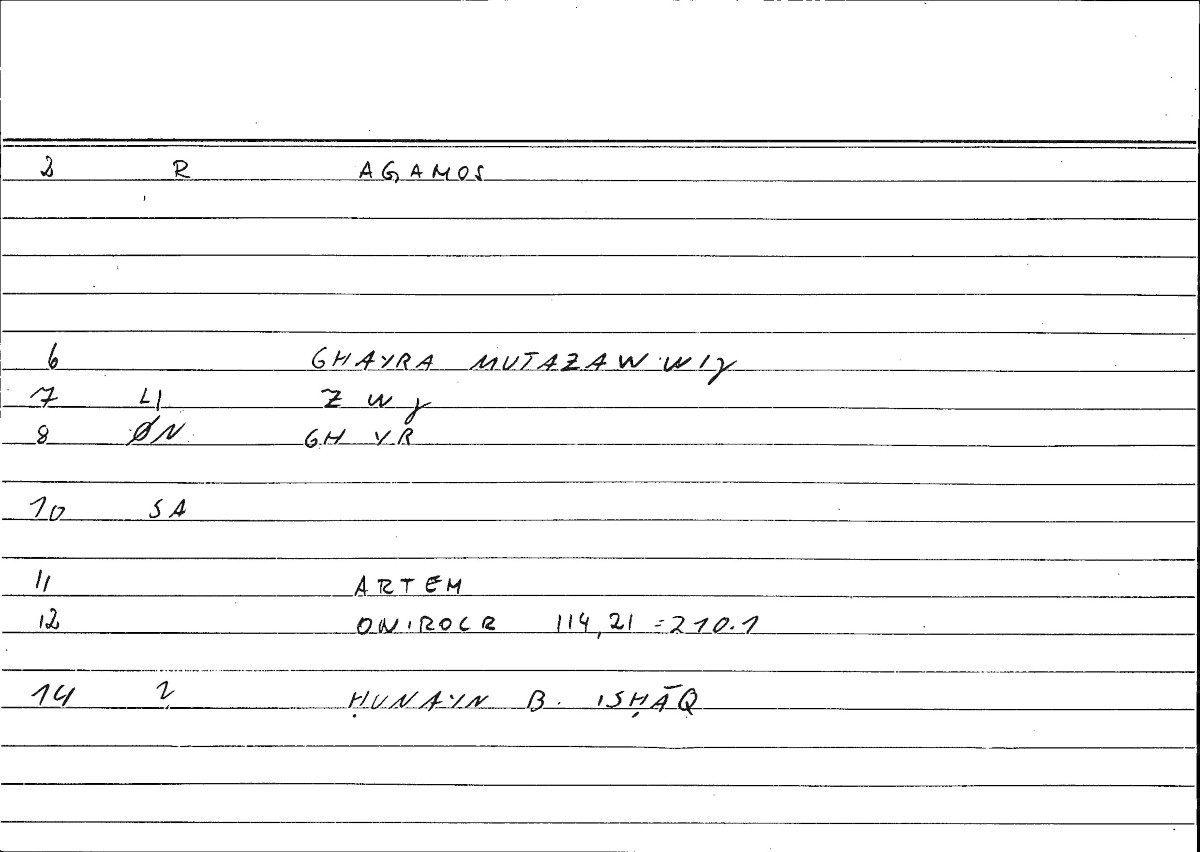 2 R AGAMOS
6 GHAYRA MUTAZAWWIJ
7 LI Z W J
8 ØN GH YR
10 SA
11 ARTEM
12 ONIROCR 114,21 =210.1
14 2 ḤUNAYN B. ISḤĀQ